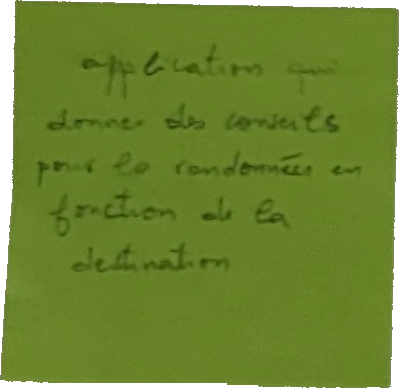 application qui
donner des conseils
pour le randonnées en
fonction de la
destination